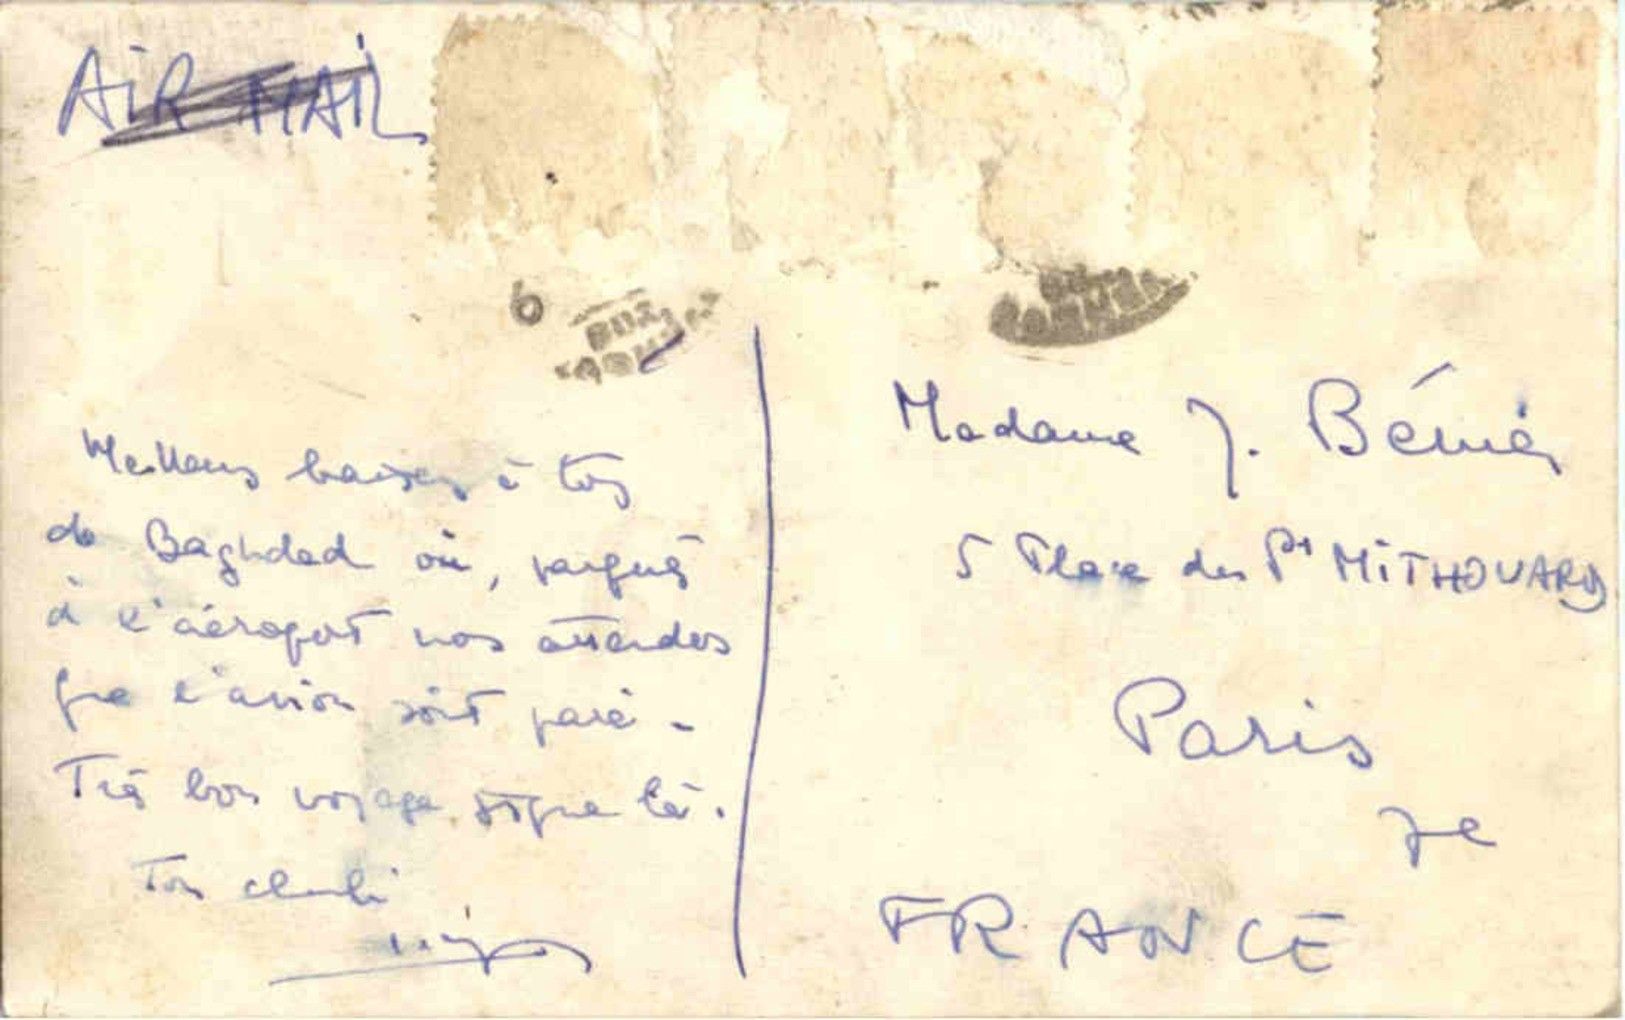 AIR MAIL
6
Meilleurs baisers à tous
de Baghdad où, parqués
à l'aéroport nous attendons
que l'avion soit paré -
Très bon voyage jusque là.
Ton
Madame J.
5 Place du Pt MITHOUARD
Paris
7e
FRANCE